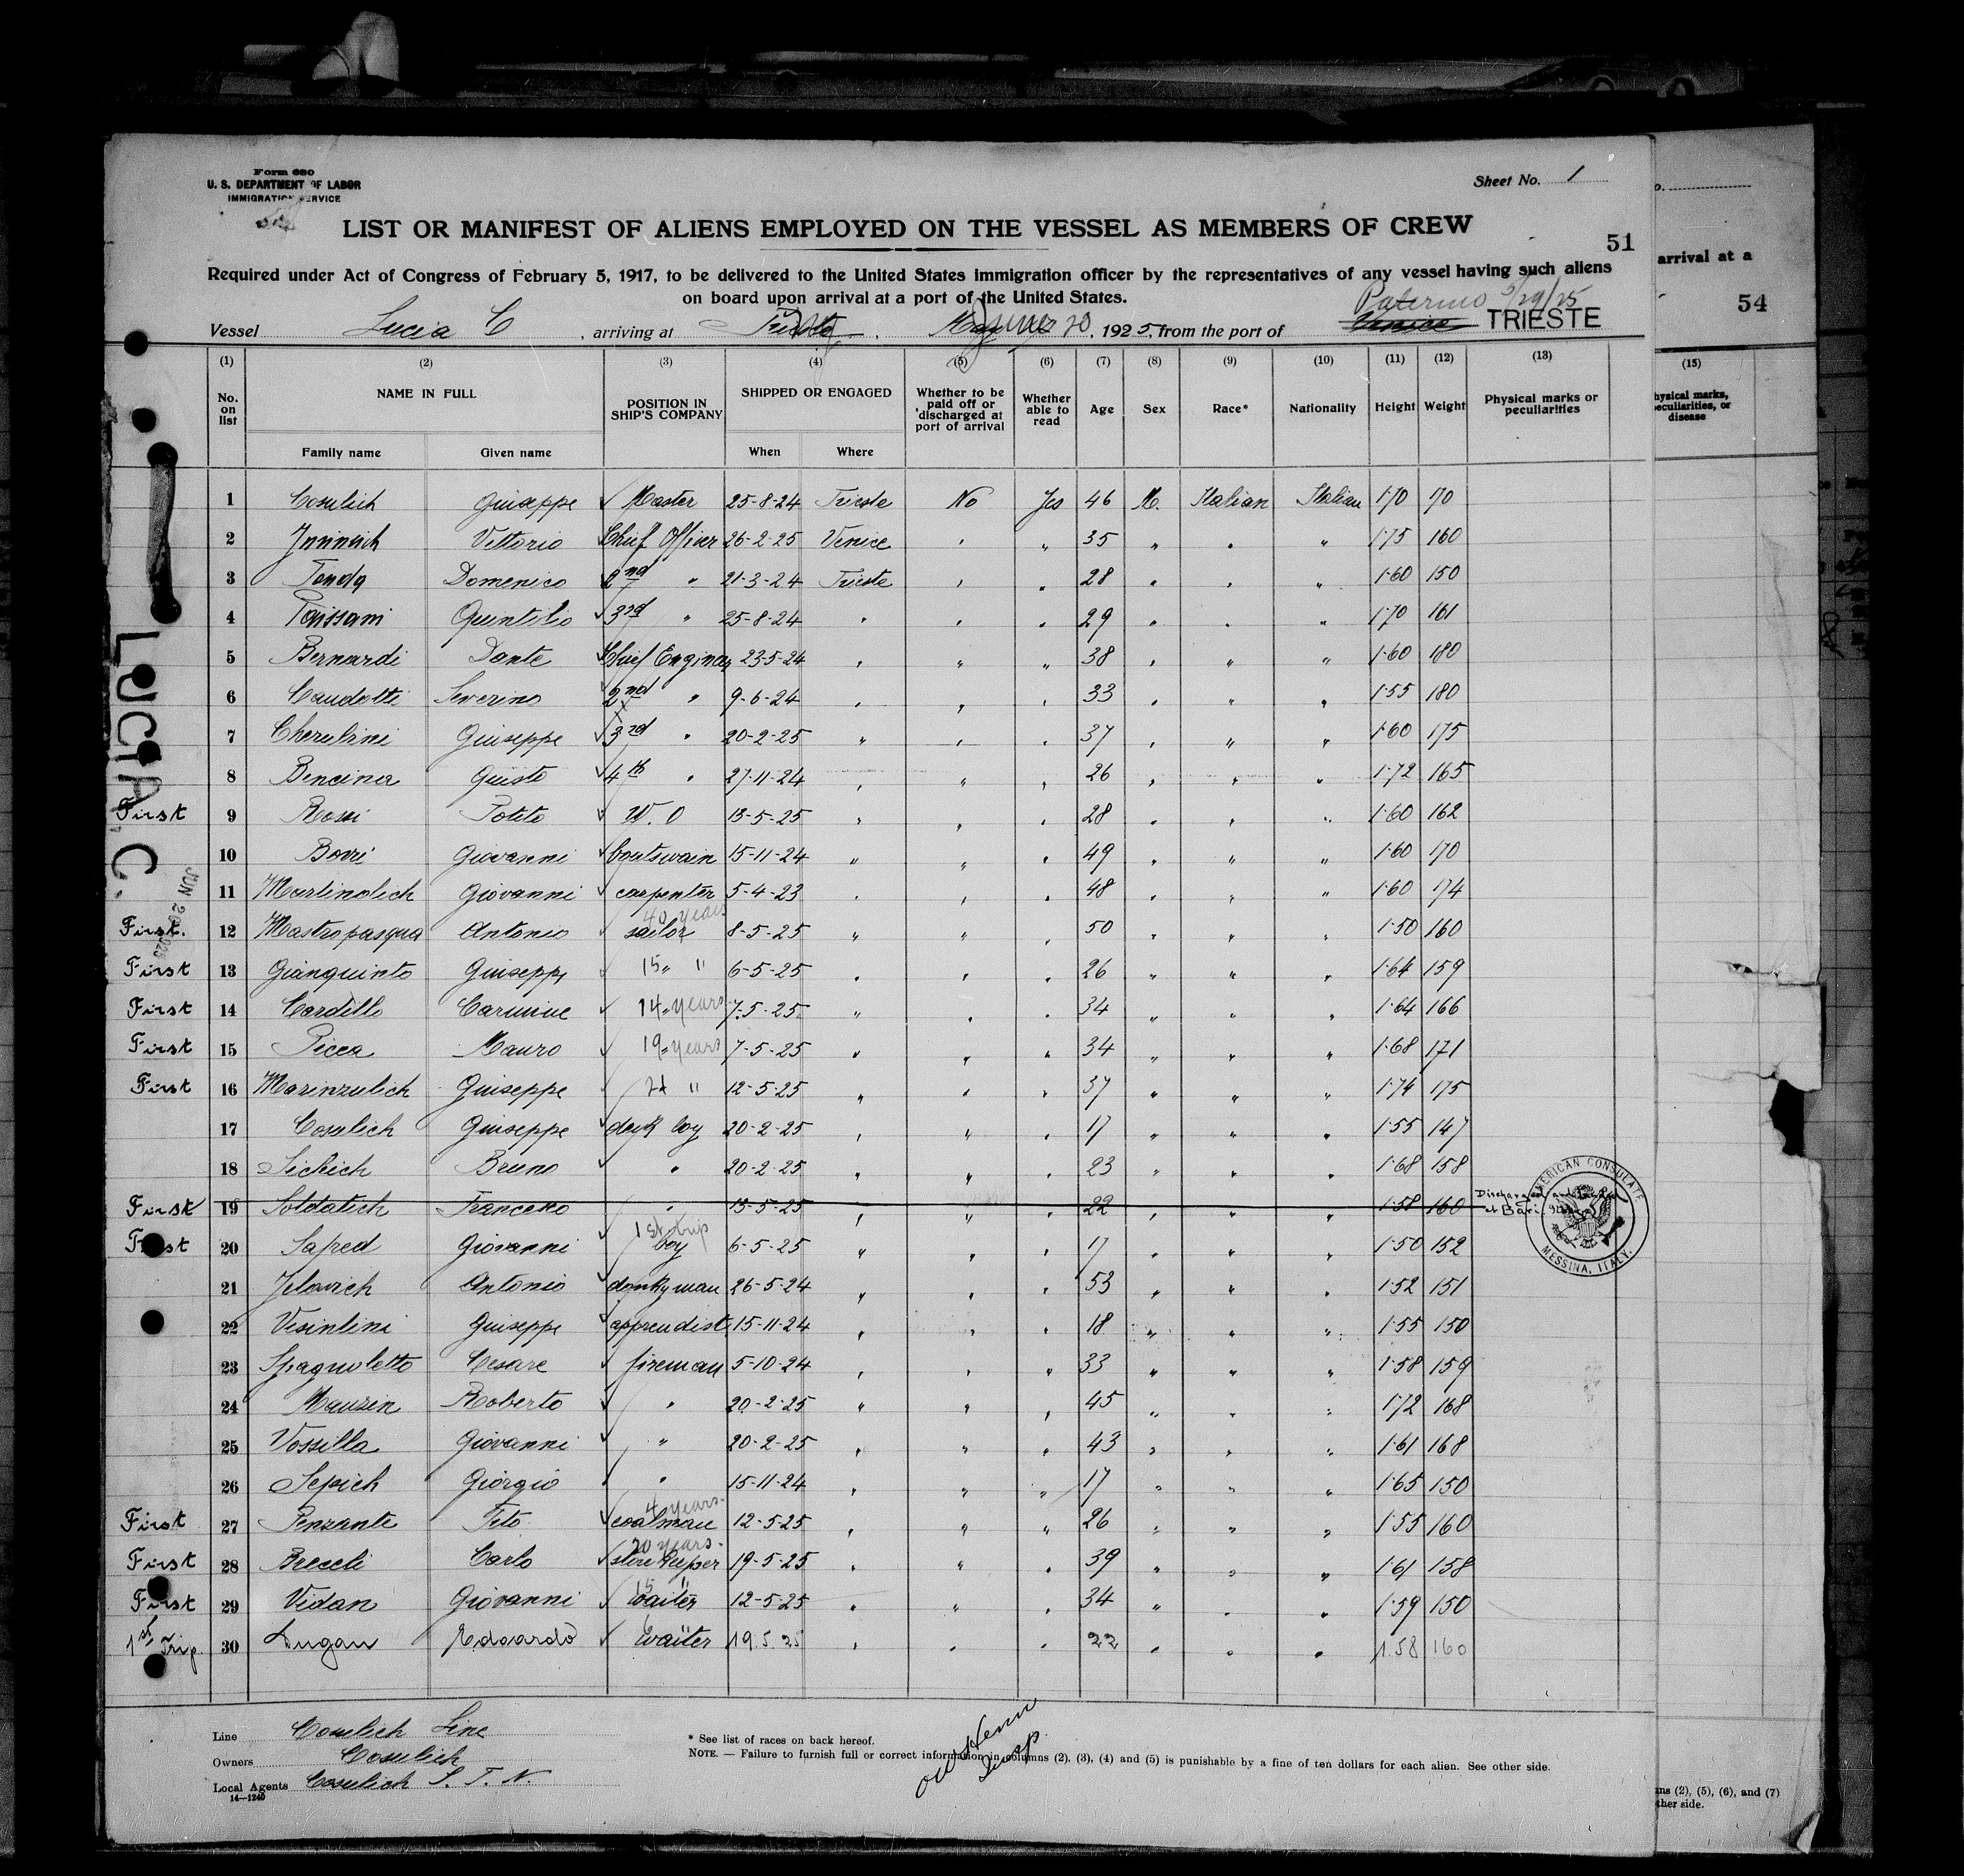 Form 680
U. S. DEPARTMENT OF LABOR
IMMIGRATION SERVICE
Sheet No. 1
LIST OR MANIFEST OF ALIENS EMPLOYED ON THE VESSEL AS MEMBERS OF CREW
51
Required under Act of Congress of February 5, 1917, to be delivered to the United States immigration officer by the representatives of any vessel having such aliens
on board upon arrival at a port of the United States.
Palermo 5/29/25
Vessel Lucia C , arriving at Trieste , June 20, 1925, from the port of Venice TRIESTE
(1) (2) (3) (4) (5) (6) (7) (8) (9) (10) (11) (12) (13)
No. on list NAME IN FULL POSITION IN SHIP'S COMPANY SHIPPED OR ENGAGED Whether to be paid off or discharged at port of arrival Whether able to read Age Sex Race* Nationality Height Weight Physical marks or peculiarities
Family name Given name When Where
1 Cosulich Giuseppe Master 25-8-24 Trieste No Yes 46 M. Italian Italian 1·70 70
2 Vittorio Chief Officer 26-2-25 Venice " " 35 " " " 1·75 160
3 Domenico 2nd " 21-3-24 Trieste " " 28 " " " 1·60 150
4 Quintilio 3rd " 25-8-24 " " " 29 " " " 1·70 161
5 Bernardi Dante Chief Engineer 23-5-24 " " " 38 " " " 1·60 180
6 Caudotti Severino 2nd " 9-6-24 " " " 33 " " " 1·55 180
7 Cherubini Giuseppe 3rd " 20-2-25 " " " 37 " " " 1·60 175
8 Benciner Giusto 4th " 27-11-24 " " " 26 " " " 1·72 165
First 9 Rossi Potito W. O 13-5-25 " " " 28 " " " 1·60 162
10 Bovri Giovanni boatswain 15-11-24 " " " 49 " " " 1·60 170
11 Martinolich Giovanni carpenter 5-4-23 " " " 48 " " " 1·60 174
40 years
First. 12 Mastropasqua Antonio sailor 8-5-25 " " " 50 " " " 1·50 160
First 13 Gianquinto Giuseppe 15 " " 6-5-25 " " " 26 " " " 1·64 159
First 14 Cardillo Carmine 14 " years 7-5-25 " " " 34 " " " 1·64 166
First 15 Picca Mauro 19 " years 7-5-25 " " " 34 " " " 1·68 171
First 16 Marinzulich Giuseppe " 12-5-25 " " " 37 " " " 1·74 175
17 Cosulich Giuseppe deck boy 20-2-25 " " " 17 " " " 1·55 147
18 Sichich Bruno " 20-2-25 " " " 23 " " " 1·68 158
First 19 Soldatich Francesco " 13-5-25 " " " 22 " " " 1·58 160 Discharged at Bari
AMERICAN CONSULATE MESSINA, ITALY.
1st trip
First 20 Sapred Giovanni boy 6-5-25 " " " 17 " " " 1·50 152
21 Jelovich Antonio donkyman 26-5-24 " " " 53 " " " 1·52 151
22 Visintini Giuseppe apprendist 15-11-24 " " " 18 " " " 1·55 150
23 Spagnoletto Cesare fireman 5-10-24 " " " 33 " " " 1·58 159
24 Mauzin Roberto " 20-2-25 " " " 45 " " " 1·72 168
25 Vossilla Giovanni " 20-2-25 " " " 43 " " " 1·61 168
26 Sepich Giorgio " 15-11-24 " " " 17 " " " 1·65 150
4 years
First 27 Penzante Tito coalman 12-5-25 " " " 26 " " " 1·55 160
20 years
First 28 Breceli Carlo store keeper 19-5-25 " " " 39 " " " 1·61 158
15 "
First 29 Vidan Giovanni waiter 12-5-25 " " " 34 " " " 1·59 150
1st Trip. 30 Dugan Edoardo waiter 19.5.25 " " " 22 " " " 1.58 160
LUCIA. C.
JUN 20 1925
Line Cosulich Line
Owners Cosulich
Local Agents Cosulich S. T. N.
14—1240
* See list of races on back hereof.
NOTE. — Failure to furnish full or correct information in columns (2), (3), (4) and (5) is punishable by a fine of ten dollars for each alien. See other side.
Insp.
o.
arrival at a
54
(15)
hysical marks, eculiarities, or disease
ns (2), (5), (6), and (7)
ther side.